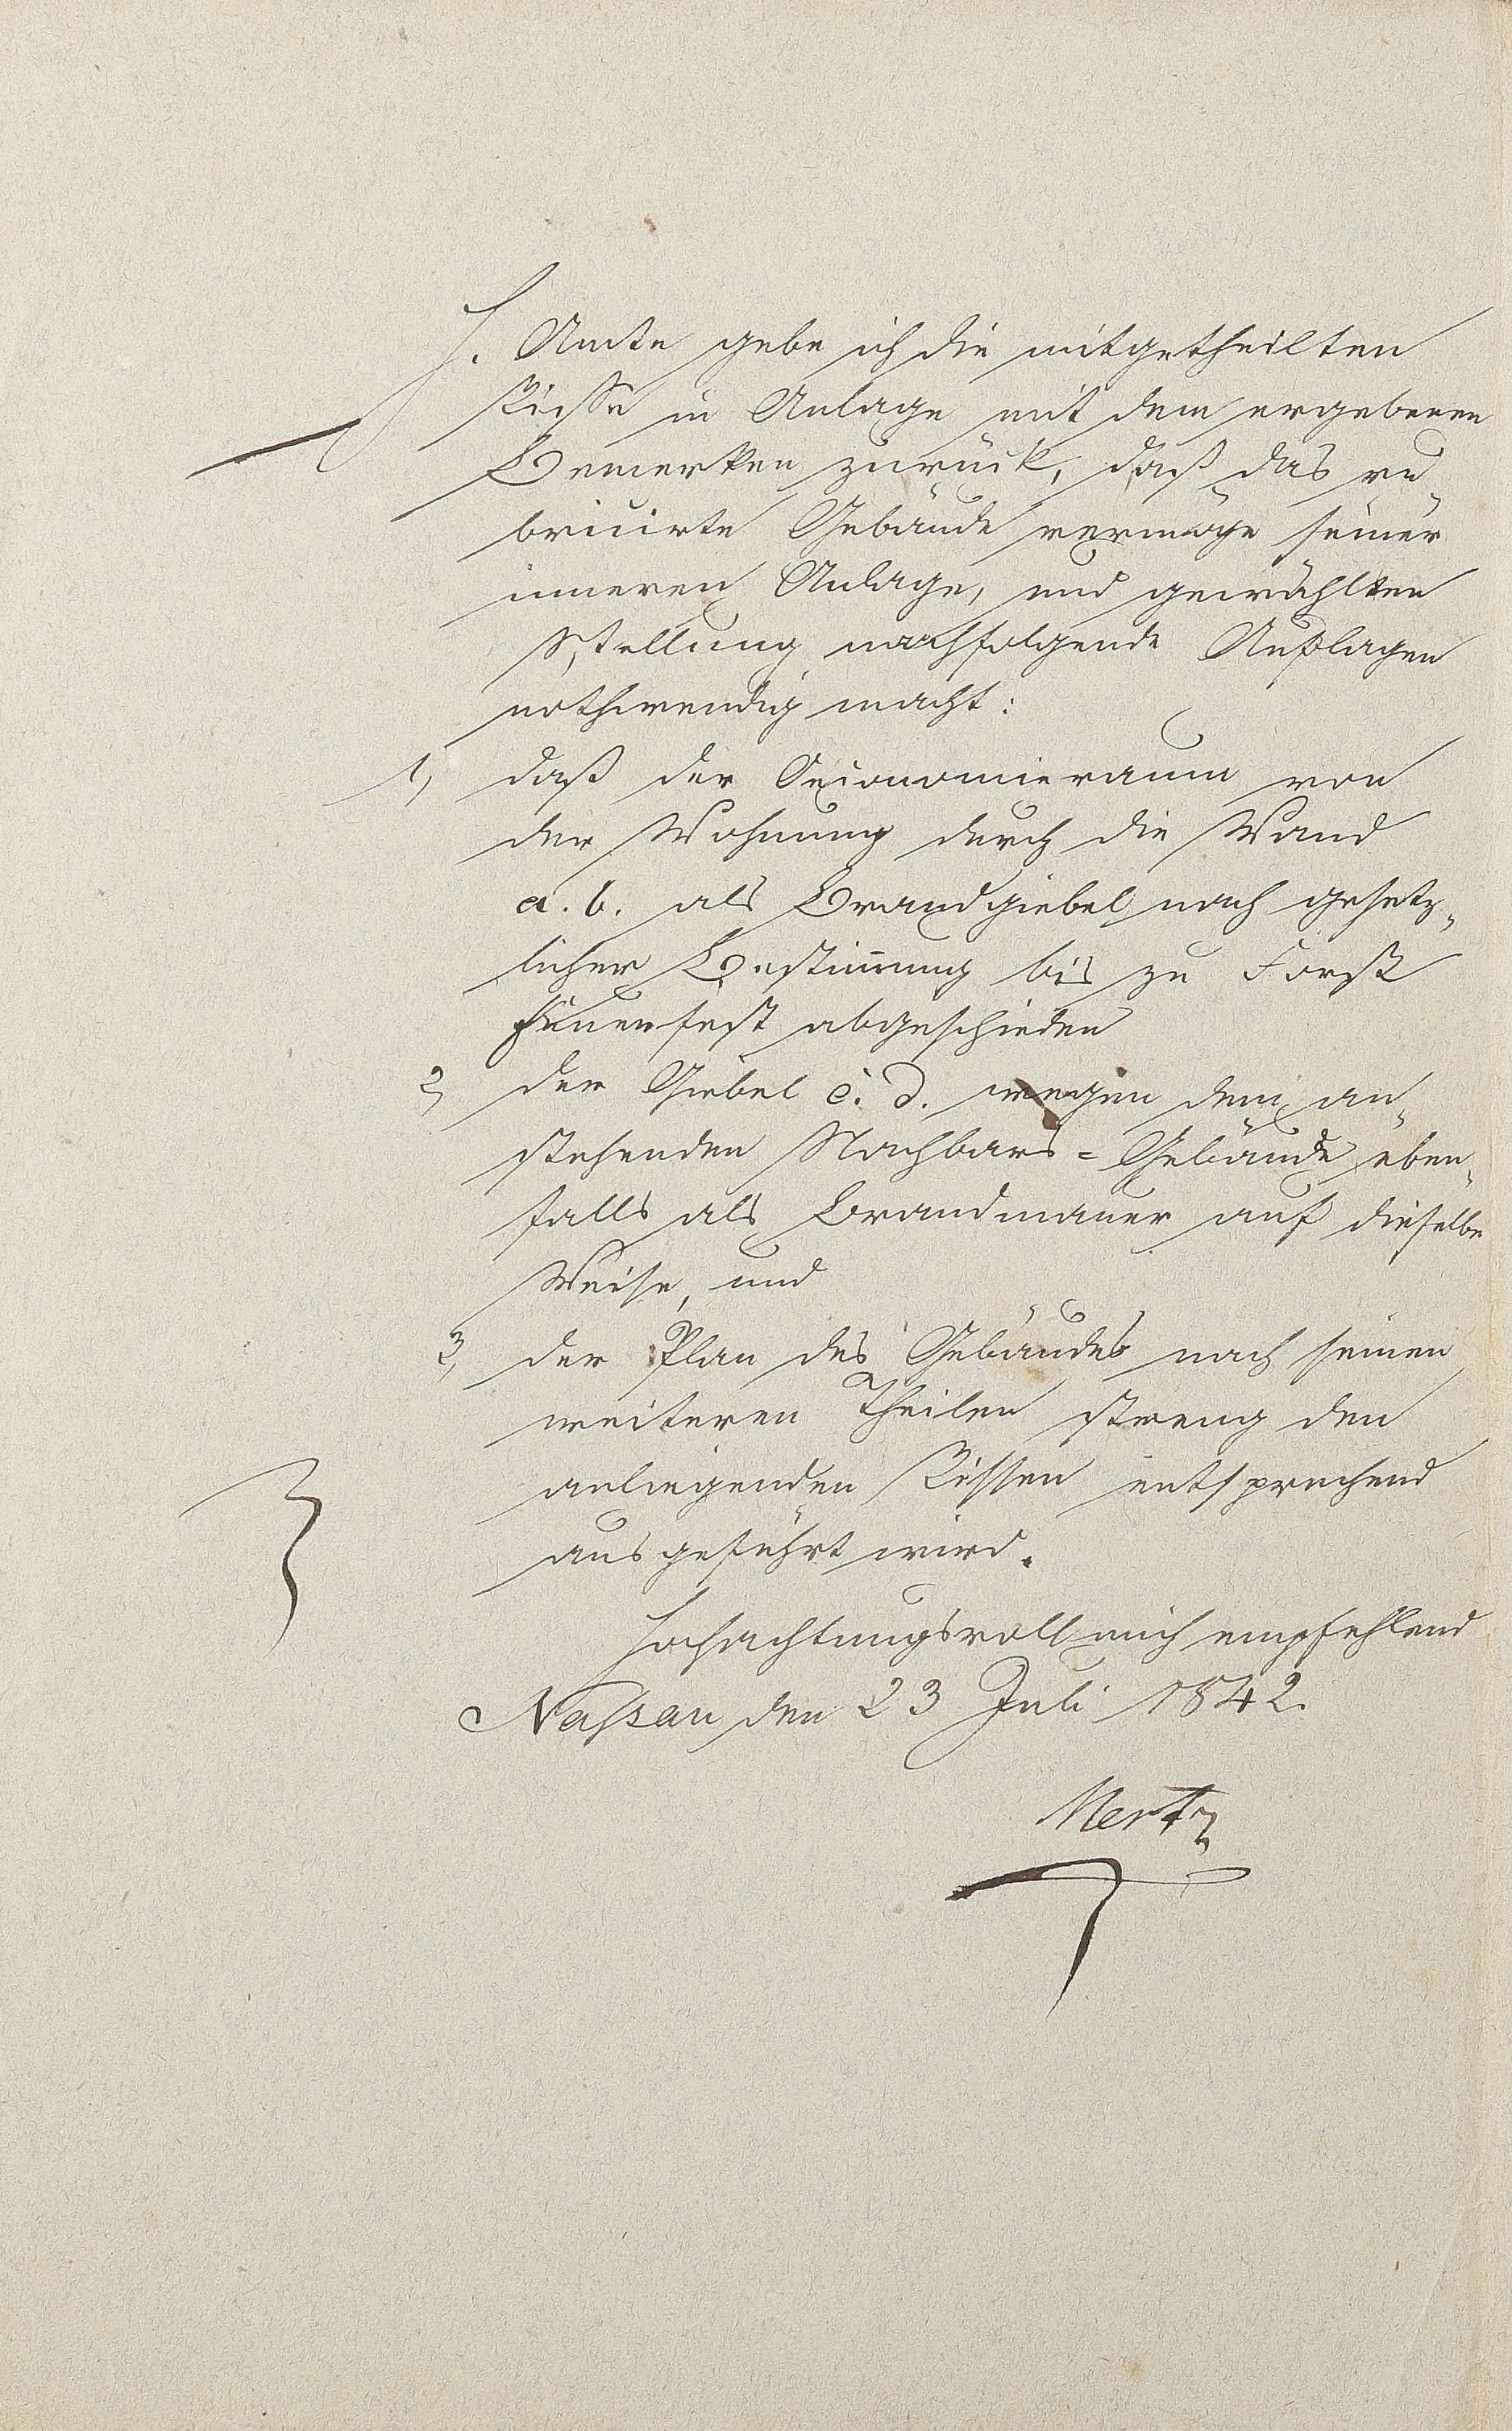 H. Amte gebe ich die mitgetheilten
Risse in Anlage mit dem ergebenen
Bemerken zurück, daß das ru¬
bricirte Gebäude vermöge seiner
inneren Anlage, und gewählten
Stellung nachfolgende Auflagen
nothwendig macht:
1, daß der Oeconomieraum von
der Wohnung durch die Wand
a. b. als Brandgiebel nach gesetz¬
licher Bestimmung bis zu Forst
feuerfest abgeschieden
2, der Giebel c. d. wegen dem an¬
stehenden Nachbars=Gebäude eben¬
falls als Brandmauer auf dieselbe
Weise, und
3, der Plan des Gebäudes nach seinen
weiteren Theilen streng den
anliegenden Rissen entsprechend
ausgeführt wird.
Hochachtungsvoll mich empfehlend
Nassau den 23 Juli 1842.
Mertz